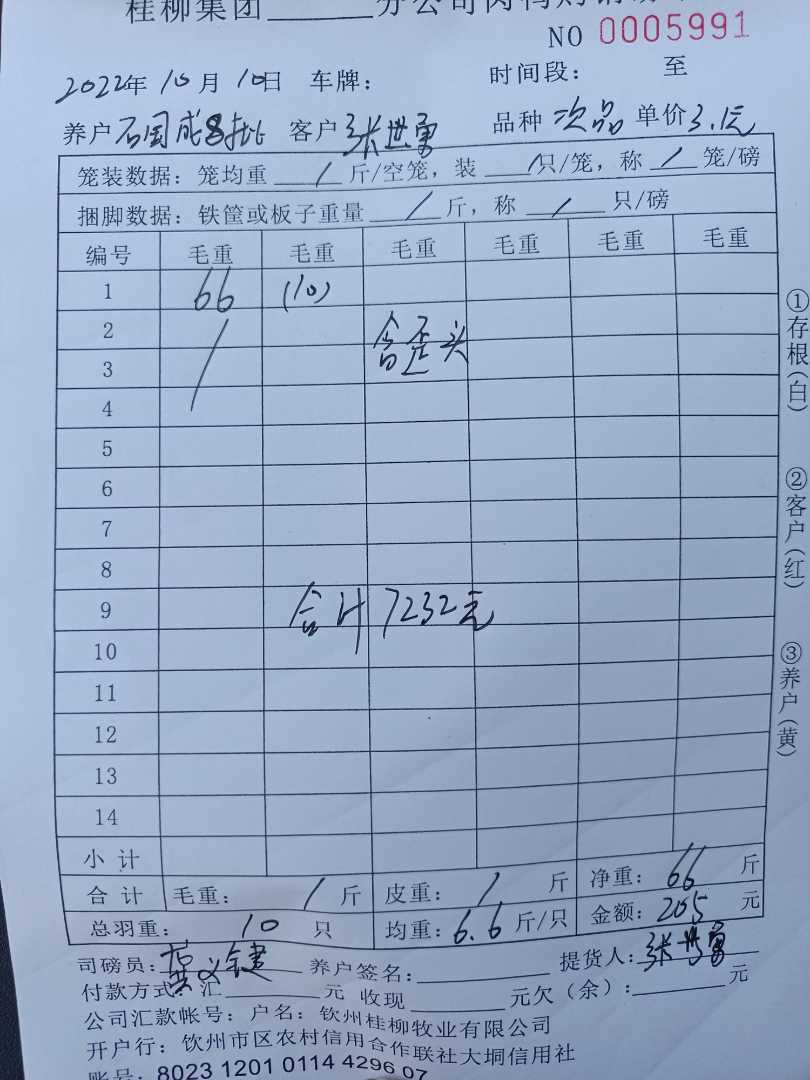 桂柳集团______分公司肉鸭购销
NO 0005991
2022年10月10日 车牌: 时间段: 至
养户 石国成8批 客户 张世勇 品种 次品 单价3.1元
笼装数据: 笼均重 / 斤/空笼, 装 / 只/笼, 称 / 笼/磅
捆脚数据: 铁筐或板子重量 / 斤, 称 / 只/磅
编号 毛重 毛重 毛重 毛重 毛重 毛重
1 66 (10)
2 /
含歪头
3
4
5
6
7
8
9 合计7232元
10
11
12
13
14
小计
合计 毛重: / 斤 皮重: / 斤 净重: 66 斤
总羽重: 10 只 均重: 6.6 斤/只 金额: 205 元
司磅员: 养户签名: 提货人: 张世勇
付款方式: 汇 元 收现 元欠(余): 元
公司汇款帐号: 户名: 钦州桂柳牧业有限公司
开户行: 钦州市区农村信用合作联社大垌信用社
账号: 8023 1201 0114 4296 07
①存根(白)
②客户(红)
③养户(黄)